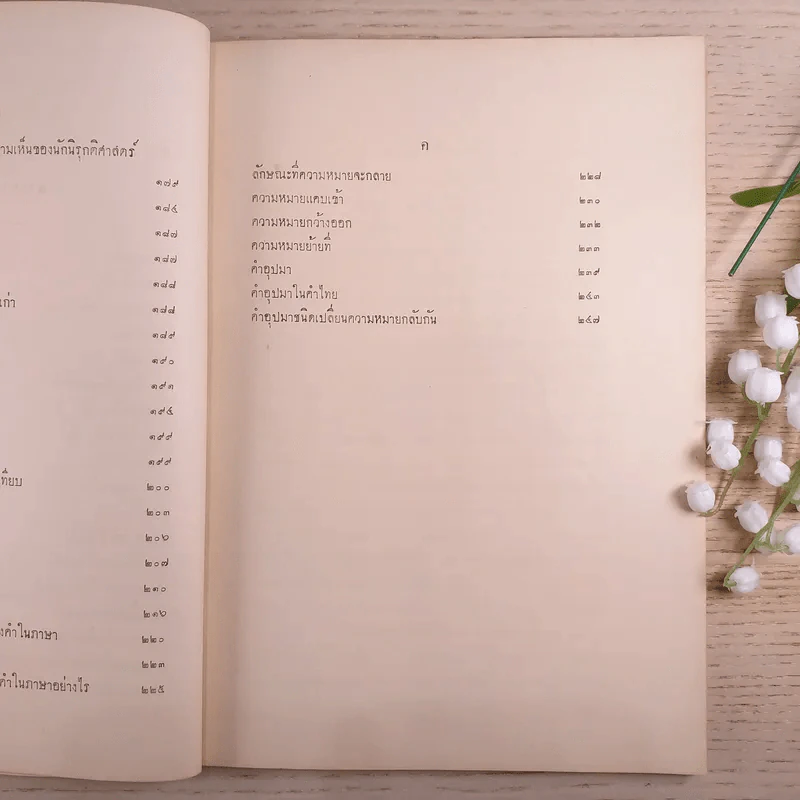 ามเห็นของนักนิรุกติศาสตร์
๑๗๙
๑๘๔
๑๘๗
๑๘๗
๑๘๘
เก่า
๑๘๘
๑๘๙
๑๙๐
๑๙๑
๑๙๕
๑๙๙
๑๙๙
เทียบ
๒๐๐
๒๐๓
๒๐๖
๒๐๗
๒๑๐
๒๑๖
งคำในภาษา ๒๒๐
๒๒๓
คำในภาษาอย่างไร ๒๒๕
ค
ลักษณะที่ความหมายจะกลาย ๒๒๘
ความหมายแคบเข้า ๒๓๐
ความหมายกว้างออก ๒๓๒
ความหมายย้ายที่ ๒๓๓
คำอุปมา ๒๓๙
คำอุปมาในคำไทย ๒๔๓
คำอุปมาชนิดเปลี่ยนความหมายกลับกัน ๒๔๗